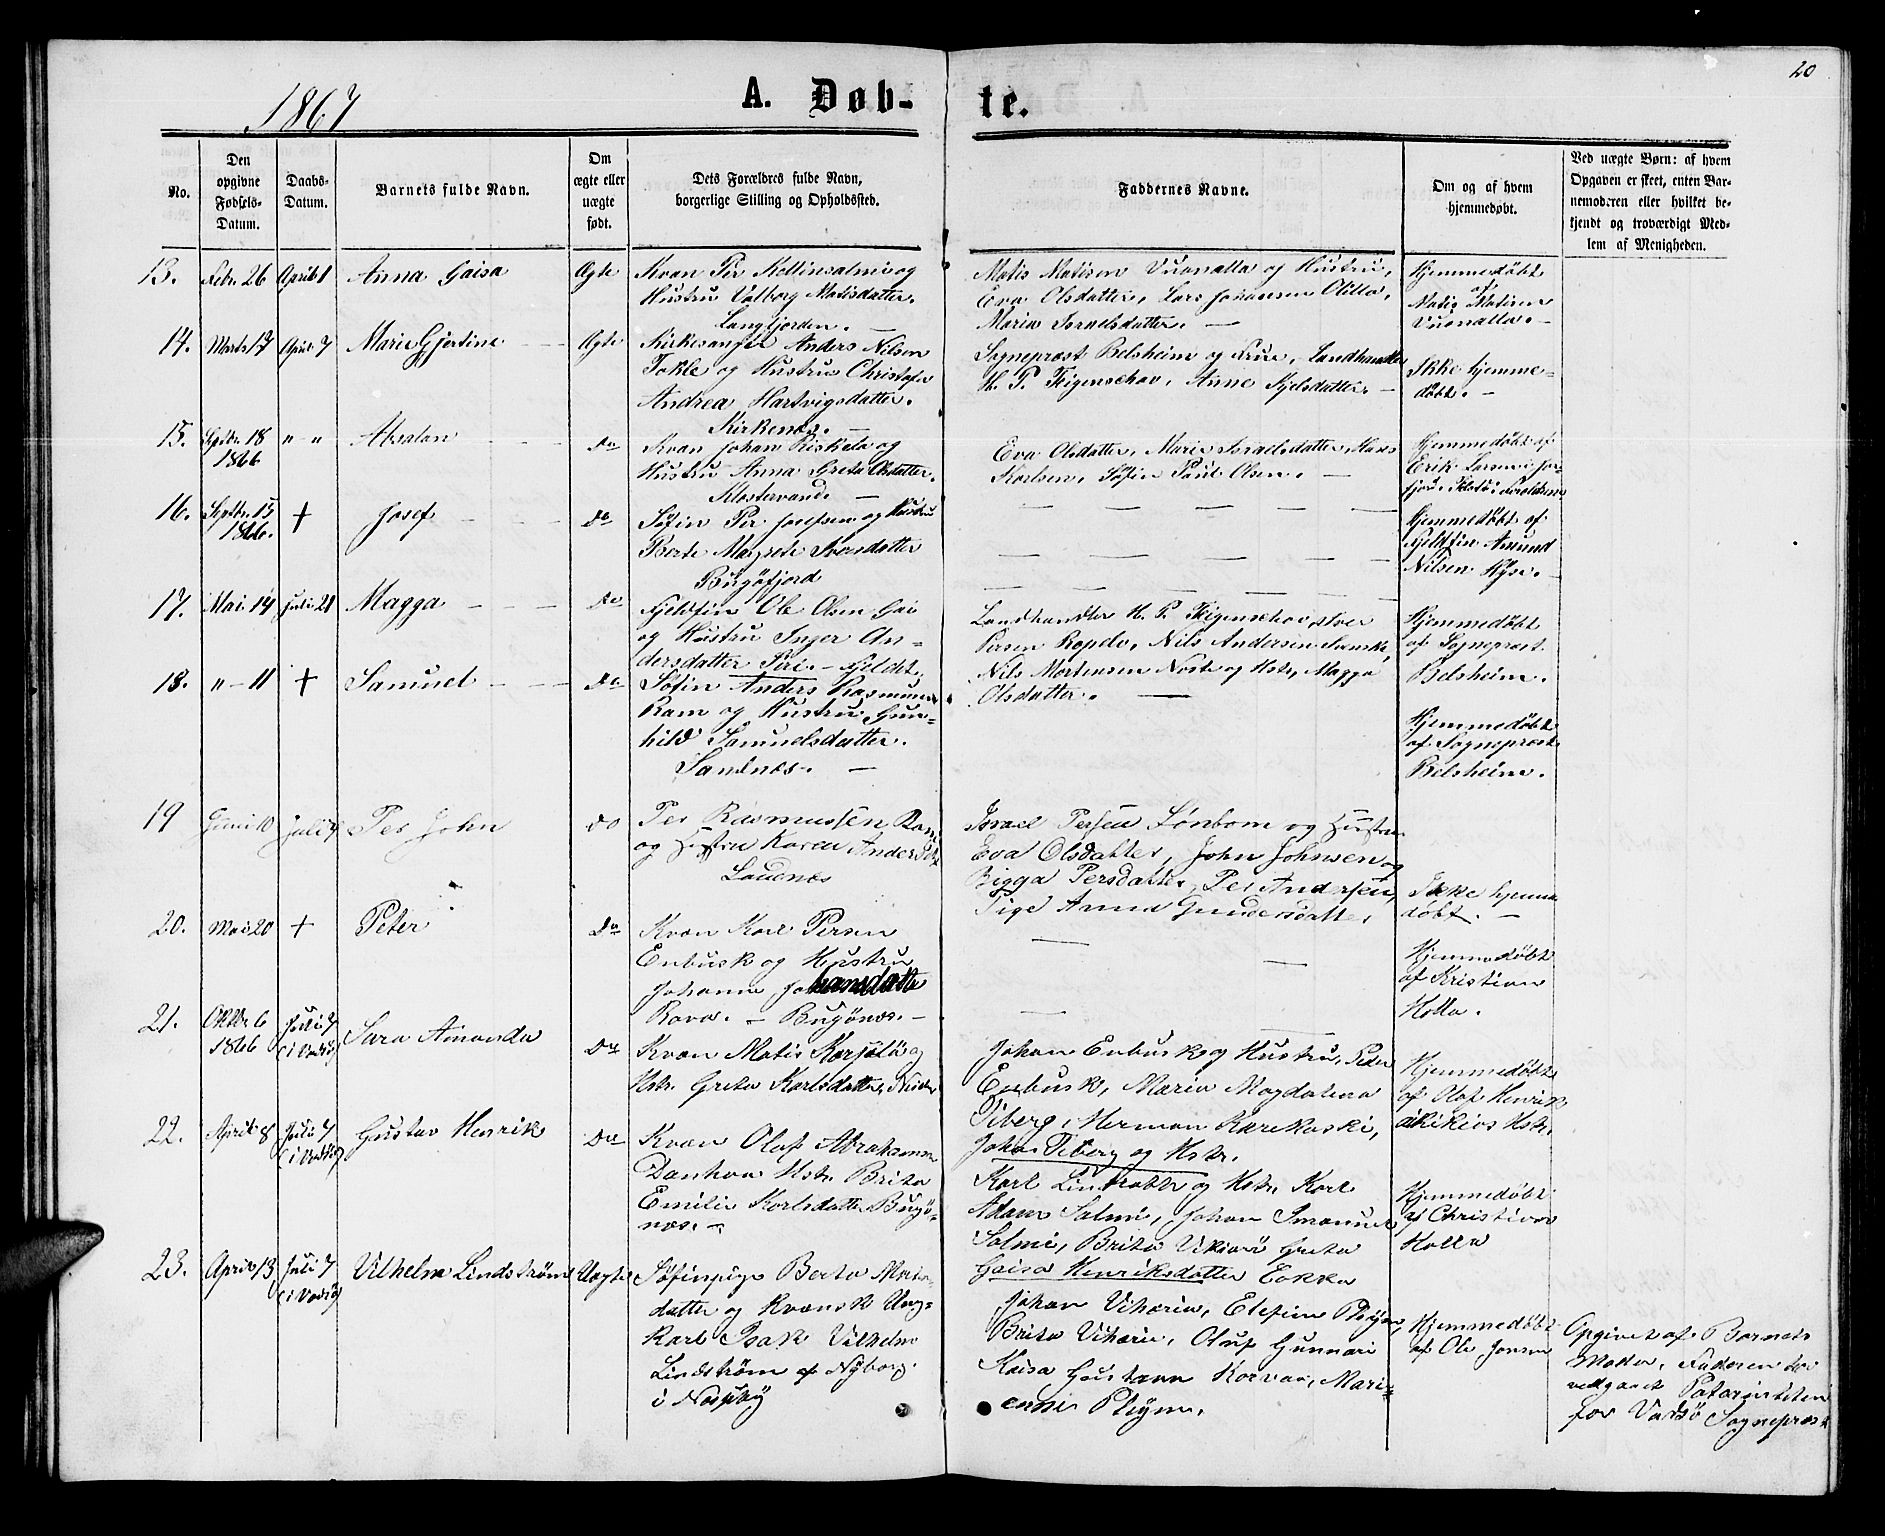 20
1867
A. Døb-te.
No.
Den opgivne Fødsels-Datum.
Daabs-Datum.
Barnets fulde Navn.
Om ægte eller uægte født.
Dets Forældres fulde Navn, borgerlige Stilling og Opholdssted.
Faddernes Navne.
Om og af hvem hjemmedøbt.
Ved uægte Børn: af hvem Opgaven er skeet, enten Barnemoderen eller hvilket bekjendt og troværdigt Medlem af Menigheden.
13. Febr. 26 April 1 Anna Gaisa Ægte
Kvæn Per Kellinsalmi og
Hustru Valborg Matisdatter.
Langfjorden. —
Matis Matisen Vuonalla og Hustru,
Eva Olsdatter, Lars Johansen Olilla,
Maria Israelsdatter. —
Hjemmedøbt
af
Matis Matisen
Vuonalla. -
14. Marts 17 April 7 Marie Gjertine Ægte
Kirkesanger Anders Nilsen
Tokle og Hustru Christofa
Andrea Hartvigsdatter.
Kirkenes. —
Sognepræst Belsheim og Frue, Landhandler
H. P. Figenschov, Anne Kjelsdatter. -
Ikke hjemme-
døbt. -
15. Septbr. 18 1866 " - " Absalon Do
Kvæn Johan Riskela og
Hustru Anna Greta Olsdatter.
Klostervand. —
Eva Olsdatter, Maria Israelsdatter, Hans
Karlsen, Søfin Poul Olsen. —
Hjemmedøbt af
Erik Larsen i Jar-
fjord.
16. Septbr. 15 1866. + Josef Do
Søfin Per Josefsen og Hustru
Berte Margrete Iversdatter
Bugøfjord
Hjemmedøbt af
Fjeldfin Amund
Nilsen Kjse. -
17. Mai 14 Juli 21 Magga Do
Fjeldfin Ole Olsen Gai
og Hustru Inger An-
dersdatter Piri. - Fjeldet.
Landhandler H. P. Figenschov, Iver
Persen Ropelv, Nils Andersen Svanvik,
Nils Mortensen Noste og Hstr. Magga
Olsdatter. —
Hjemmedøbt
af Sognepræst
Belsheim.
18. " - 11 + Samuel Do
Søfin Anders Rasmussen
Ram og Hustru Gun-
hild Samuelsdatter.
Sandnes. —
Hjemmedøbt
af Sognepræst
Belsheim.
19 Juni 10 Juli 7 Per John Do
Per Rasmussen Ram
og Hustru Karen Andersdtr
Sandnes
Israel Persen Lønbom og Hustru
Eva Olsdatter, John Johnsen og
Bigga Persdatter, Per Andersen,
Pige Anna Gundersdatter.
Ikke hjemme
døbt. -
20. Mai 20 + Peter Do
Kvæn Karl Persen
Enbusk og Hustru
Johanne Johansdatter
Rova. - Bugønes. -
Hjemmedøbt
af Kristian
Holla.
21. Oktbr. 6 1866 Juli 7 (i Vadsø) Sara Amanda Do
Kvæn Matis Karjola og
Hstr. Greta Karlsdatter,
Johan Enbusk og Hustru, Peder
Enbusk, Maria Magdalena
Tiberg, Herman Karikoski,
Johan Tiberg og Hstr.
Hjemmedøbt
af Olaf Henrik
Hstr.
22. April 8 Juli 7 (i Vadsø) Gustav Henrik Do
Kvæn Olaf Abrahamsen
Dankov Hstr. Brita
Emilie Karlsdatter Bugø-
nes. -
Karl Lindrobel og Hstr. Karl
Adam Salmi, Johan Imanuel
Salmi, Brita Greta
Gaisa Henriksdatter Eokka
Hjemmedøbt
af Christian
Holla
23. April 13 Juli 7 (i Vadsø) Vilhelm Lindstrøm Uægte
Søfinpige Berta Matis-
datter og kvænsk Ung-
karl Isak Vilhelm
Lindstrøm af Nyborg
i Næsseby
Johan Viharia, Elefine
Brita Viharia, Oluf Gunnari
Kaisa Gustava Korvas, Mari-
enni
Hjemmedøbt
af Ole Jonsen
Opgivet af Barnets
Moder, Faderen har
vedgaaet Paterniteten
for Vadsø Sognepræst